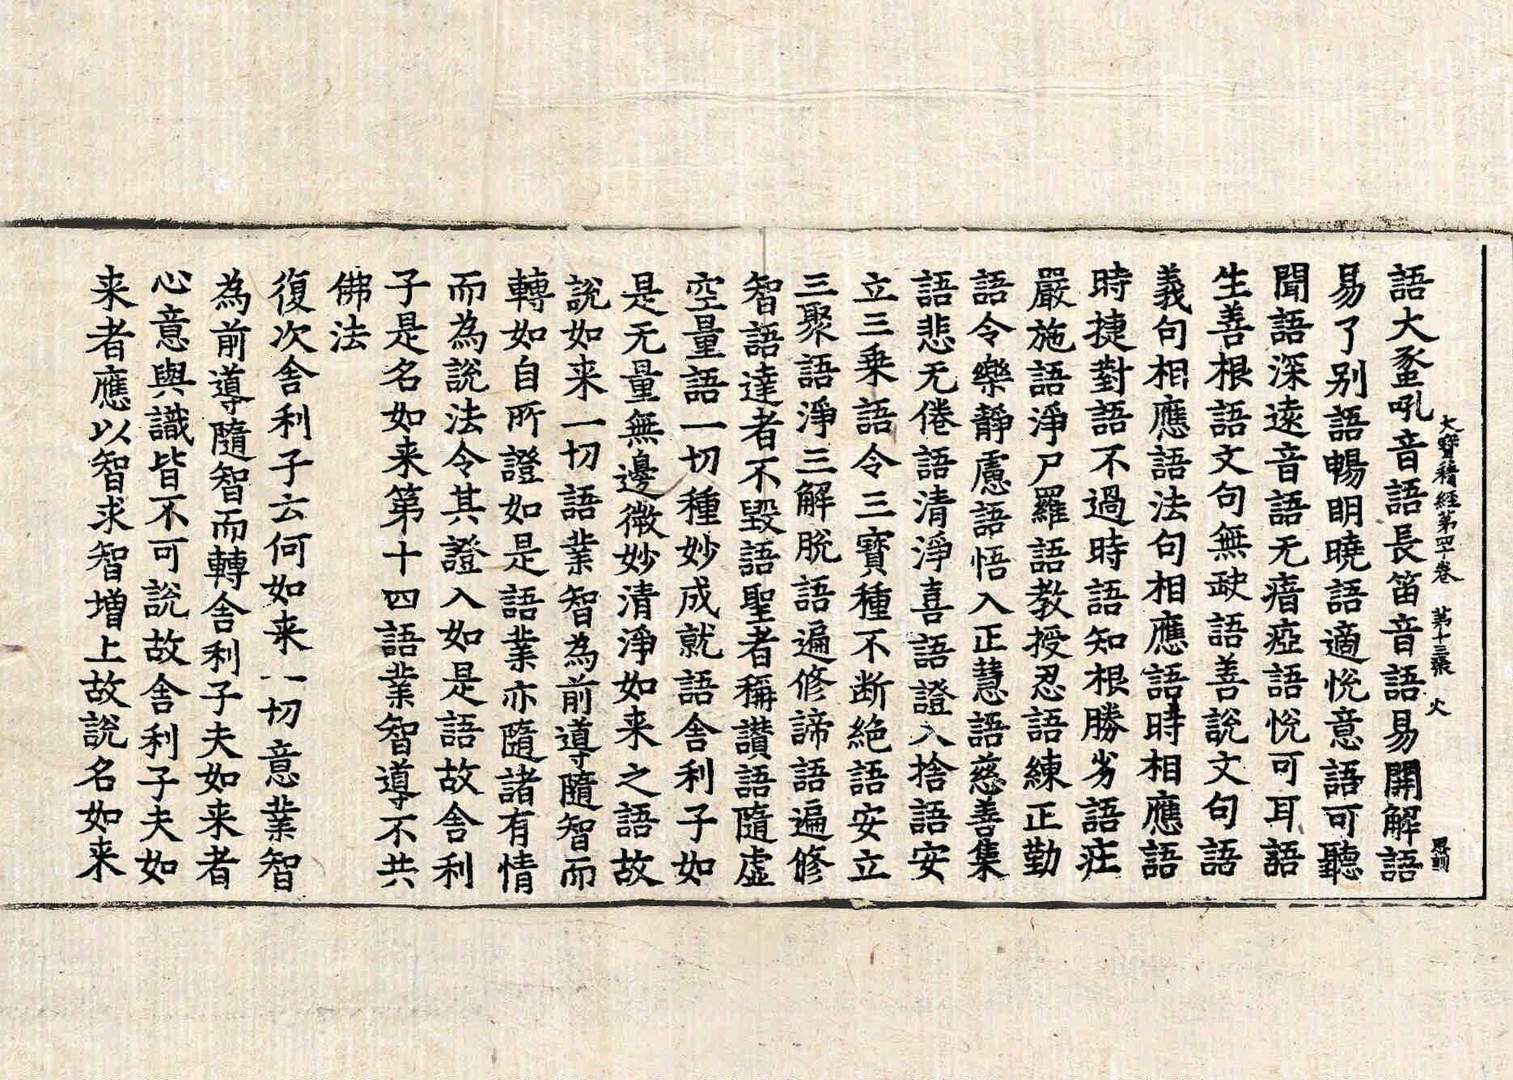 大寶積經第四十卷 第十三張 火 恩訓
語大蠡吼音語長笛音語易開解語
易了別語暢明曉語適悅意語可聽
聞語深遠音語无瘖瘂語悅可耳語
生善根語文句無缺語善說文句語
義句相應語法句相應語時相應語
時捷對語不過時語知根勝劣語莊
嚴施語淨尸羅語教授忍語練正勤
語令樂靜慮語悟入正慧語慈善集
語悲无倦語清淨喜語證入捨語安
立三乗語令三寳種不断絕語安立
三聚語淨三解脫語遍修諦語遍修
智語達者不毀語聖者稱讃語隨虛
空量語一切種妙成就語舍利子如
是无量無邊微妙清淨如来之語故
說如来一切語業智為前導隨智而
轉如自所證如是語業亦隨諸有情
而為說法令其證入如是語故舍利
子是名如来第十四語業智導不共
佛法
復次舍利子云何如来一切意業智
為前導隨智而轉舍利子夫如来者
心意與識皆不可說故舍利子夫如
来者應以智求智增上故說名如来